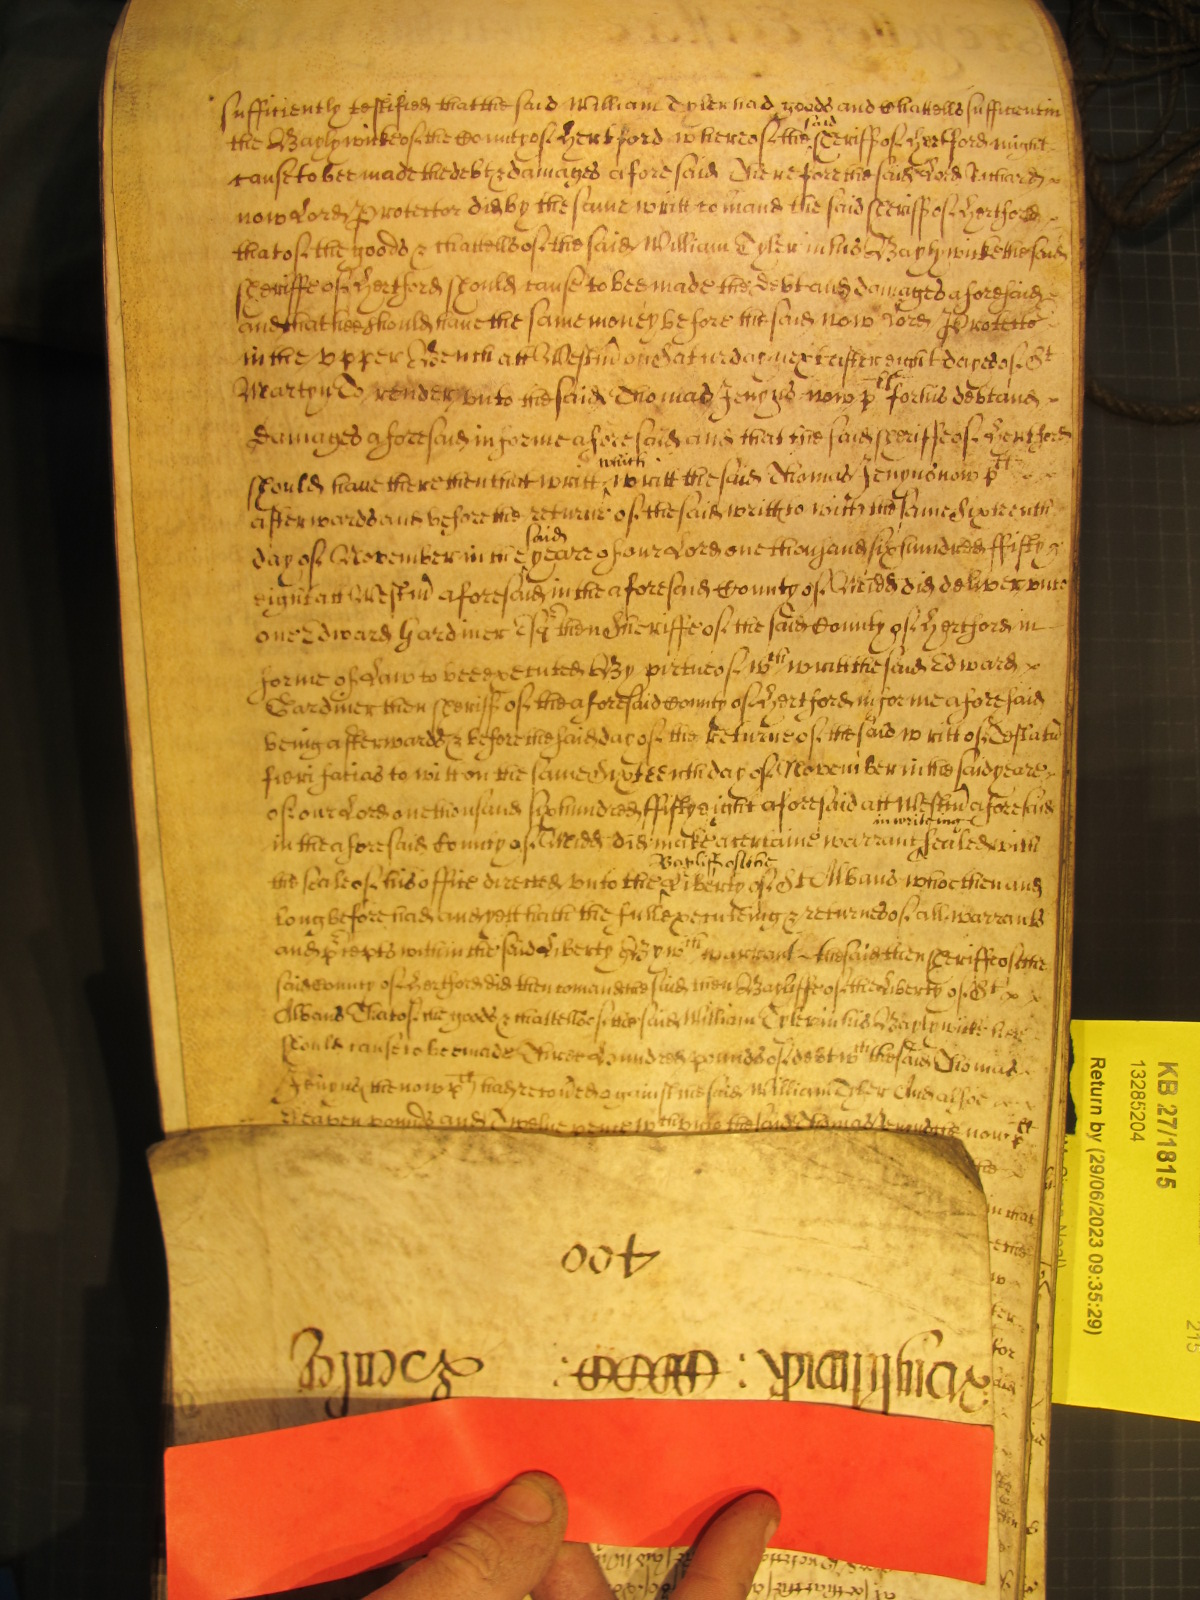 sufficiently testified that the said William Tyler had goods and Chattells sufficient in
the Baylywicke of the County of Hertford whereof the said Sheriff of Hertford might
cause to bee made the debt & damages aforesaid Therefore the said Lord Richard
now Lord Protector did by the same writt comand the said Sheriff of Hertford
that of the goods & chattells of the said William Tyler in his Baylywicke the said
Sheriffe of Hertford should cause to bee made the debt and damages aforesaid
and that hee should have the same money before the said now Lord Protector
in the Upper Bench att Westm̃ on Saturday next after eight dayes of St
Martyn To render unto the said Thomas Jenyns now plt for his debt and
damages aforesaid in forme aforesaid and that the said Sheriffe of Hertford
should have there then that writt which writt the said Thomas Jenyns now plt
afterwards and before the returne of the said writt to witt the same Sixteenth
day of November in the said yeare of our Lord one thousand six hundred ffifty &
eight att Westm̃ aforesaid in the aforesaid County of Midd did deliver unto
one Edward Gardiner Esq then Sheriffe of the said County of Hertford in
forme of Law to bee executed By virtue of wch writt the said Edward
Gardiner then Sheriff of the aforesaid County of Hertford in forme aforesaid
being afterwards & before the said day of the returne of the said writt of Testatu
fieri facias to witt on the same Sixteenth day of November in the said yeare
of our Lord one thousand six hundred ffifty eight aforesaid att Westm̃ aforesaid
in the aforesaid County of Midd did make a certaine warrant in writeing sealed with
the seale of his office directed unto the Bayliff of the Liberty of St Albans who then and
long before had and yett hath the full executeing & returnes of all warrants
and p̃cepts within the said Liberty By wch warrant the said then Sheriffe of the
said County of Hertford did then comand the said then Bayliffe of the Liberty of St
Albans That of the goods & chattells of the said William Tyler in his Baylywicke hee
should cause to bee made Three hundred pounds of debt wch the said Thomas
Jenyns the now plt had recoṽed against the said William Tyler And alsoe
Eleaven pounds and Twelve pence wch the said Thomas Jenyns the now plt
400
KB 27/1815
13285204
Return by (29/06/2023 09:35:29)
215